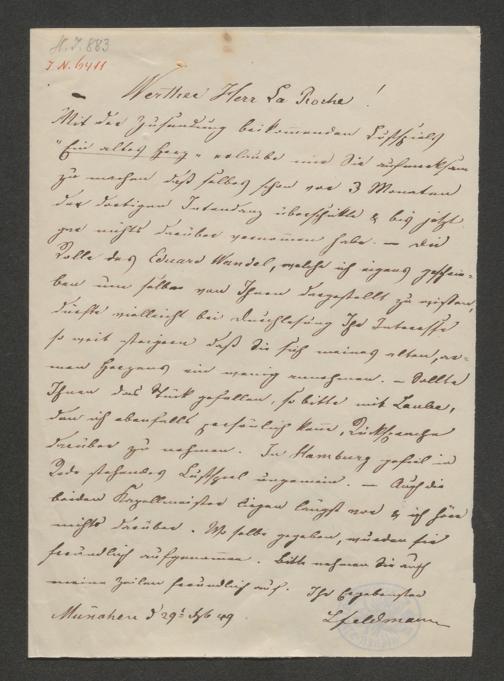 H.I. 883
I.N. 6411
Werther Herr La Roche!
Mit der Zusendung beikomenden Lustspiels
"Ein altes Herz" erlaube mir Sie aufmerksam
zu machen daß selbes schon vor 3 Monaten
der dortigen Intendanz überschikte & bis jetzt
gar nichts darüber vernommen habe. — Die
Rolle des Eduard Wandel, welche ich eigens geschrie-
ben um selbe von Ihnen dargestellt zu wissen,
dürfte vielleicht bei Durchlesung Ihr Interesse
so weit steigern daß Sie sich meines alten, ar-
men Herzens ein wenig annehmen. — Sollte
Ihnen das Stück gefallen, so bitte mit Laube,
den ich ebenfalls persönlich kene, Rücksprache
darüber zu nehmen. In Hamburg gefiel in
Rede stehendes Lustspiel ungemein. — Auch die
beiden Kapellmeister liegen längst vor & ich höre
nichts darüber. Wo selbe gegeben, wurden sie
freundlich aufgenommen. Bitte nehmen Sie auch
meine Zeilen freundlich auf. Ihr Ergebenster
München d 29t 49 LFeldmann